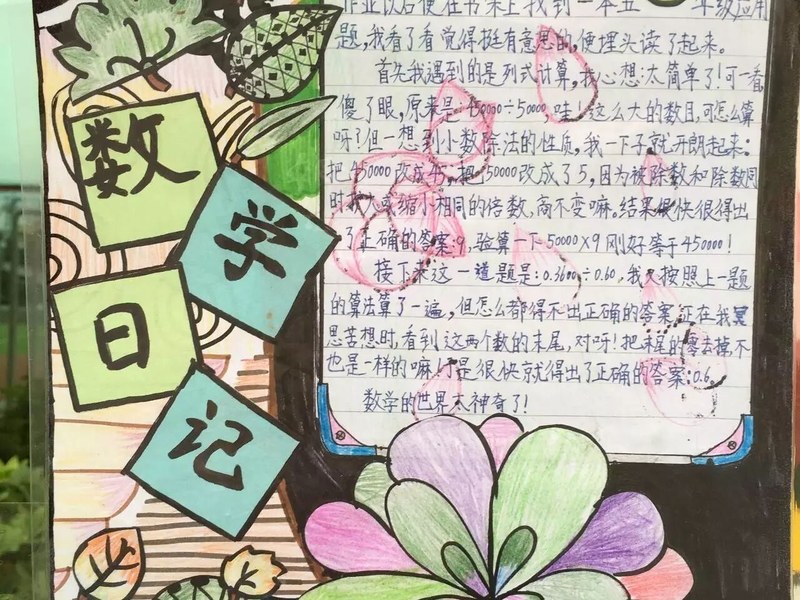 数
学
日
记
作业以后便在书架上找到一本五 年级应用
题,我看了看觉得挺有意思的,便埋头读了起来。
首先我遇到的是列式计算,我心想:太简单了!可一看
傻了眼,原来是:450000÷50000,哇!这么大的数目,可怎么算
呀!但一想到小数除法的性质,我一下子就开朗起来:
把450000改成45,把50000改成了5,因为被除数和除数同
时扩大或缩小相同的倍数,商不变嘛。结果很快很得出
了正确的答案:9,验算一下50000×9刚好等于450000!
接下来这一道题是:0.3600÷0.60,我按照上一题
的算法算了一遍,但怎么都得不出正确的答案,正在我冥
思苦想时,看到这两个数的末尾,对呀!把末尾的零去掉,不
也是一样的嘛!于是很快就得出了正确的答案:0.6。
数学的世界太神奇了!